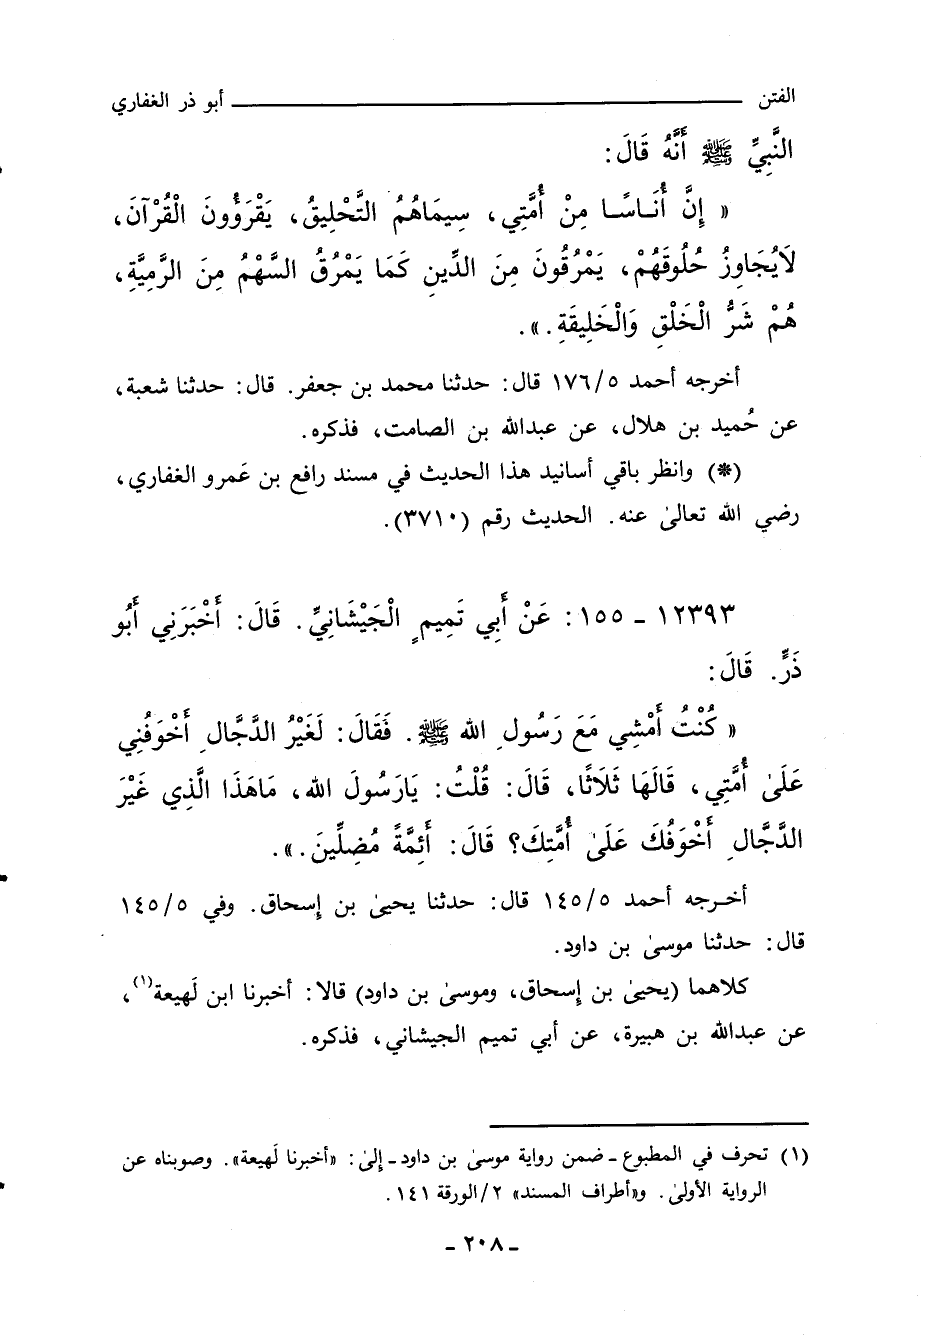 الفتن ــــــــ أبو ذر الغفاري
النَّبِيِّ ﷺ أَنَّهُ قَالَ:
« إِنَّ أُنَـاسًـا مِنْ أُمَّتِي، سِيمَاهُمُ التَّحْلِيقُ، يَقْرَؤُونَ الْقُرْآنَ،
لَايُجَاوِزُ حُلُوقَهُمْ، يَمْرُقُونَ مِنَ الدِّينِ كَمَا يَمْرُقُ السَّهْمُ مِنَ الرَّمِيَّةِ،
هُمْ شَرُّ الْخَلْقِ وَالْخَلِيقَةِ.».
أخرجه أحمد ١٧٦/٥ قال: حدثنا محمد بن جعفر. قال: حدثنا شعبة،
عن حُميد بن هلال، عن عبدالله بن الصامت، فذكره.
(*) وانظر باقي أسانيد هذا الحديث في مسند رافع بن عَمرو الغفاري،
رضي الله تعالىٰ عنه. الحديث رقم (٣٧١٠).
١٢٣٩٣ ـ ١٥٥: عَنْ أَبِي تَمِيمٍ الْجَيْشَانِيِّ. قَالَ: أَخْبَرَنِي أَبُو
ذَرٍّ. قَالَ:
« كُنْتُ أَمْشِي مَعَ رَسُولِ الله ﷺ. فَقَالَ: لَغَيْرُ الدَّجَّالِ أَخْوَفُنِي
عَلَىٰ أُمَّتِي، قَالَهَا ثَلَاثًا، قَالَ: قُلْتُ: يَارَسُولَ الله، مَاهَذَا الَّذِي غَيْرَ
الدَّجَّالِ أَخْوَفُكَ عَلَىٰ أُمَّتِكَ؟ قَالَ: أَئِمَّةً مُضِلِّينَ.».
أخـرجه أحمد ١٤٥/٥ قال: حدثنا يحيىٰ بن إسحاق. وفي ١٤٥/٥
قال: حدثنا موسىٰ بن داود.
كلاهما (يحيىٰ بن إسحاق، وموسىٰ بن داود) قالا: أخبرنا ابن لَهيعة(١)،
عن عبدالله بن هبيرة، عن أبي تميم الجيشاني، فذكره.
(١) تحرف في المطبوع ـ ضمن رواية موسىٰ بن داود ـ إلىٰ: «أخبرنا لَهيعة». وصوبناه عن
الرواية الأولىٰ. و«أطراف المسند» ٢/الورقة ١٤١.
ـ ٢٠٨ ـ